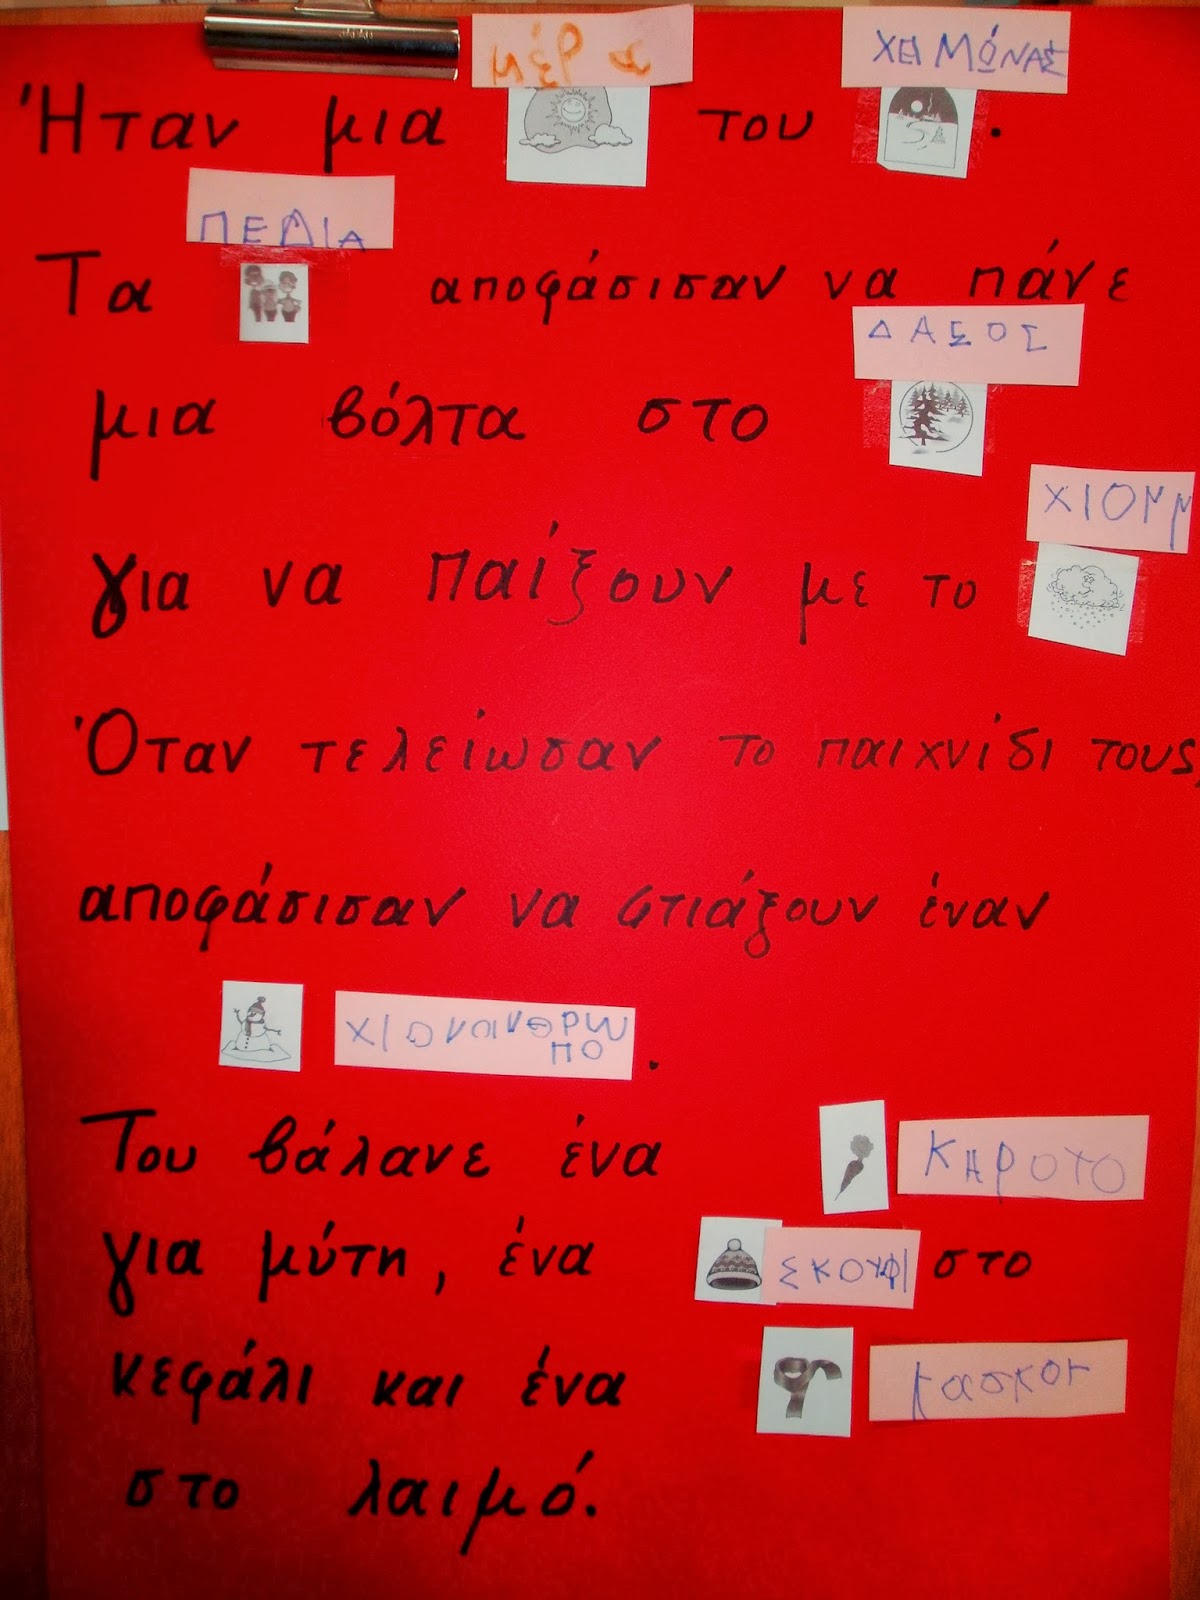 Ήταν μια μέρα του ΧΕΙΜΩΝΑΣ.
Τα ΠΕΔΙΑ αποφάσισαν να πάνε
μια βόλτα στο ΔΑΣΟΣ
για να παίξουν με το
Όταν τελείωσαν το παιχνίδι τους,
αποφάσισαν να φτιάξουν έναν
ΧΙΟΝΑΝΘΡΩ
ΠΟ.
Του βάλανε ένα ΚΗΡΟΤΟ
για μύτη, ένα ΣΚΟΥΦΙ στο
κεφάλι και ένα
στο λαιμό.